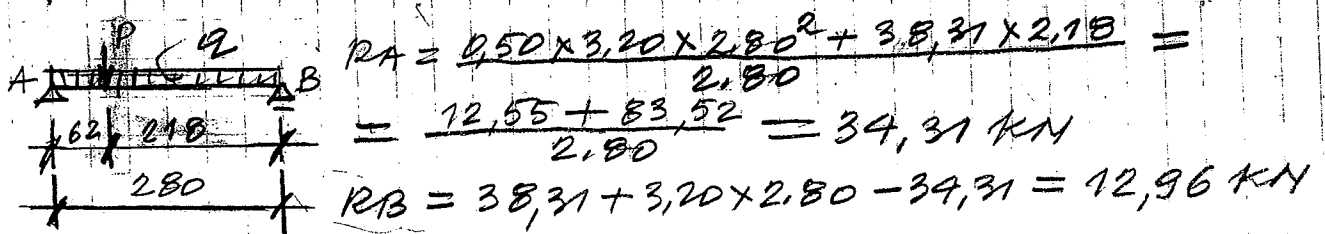 P q
A B
62 218
280
RA = 0,50 x 3,20 x 2.80² + 38,31 x 2.18 / 2.80 =
= 12,55 + 83,52 / 2.80 = 34,31 KN
RB = 38,31 + 3,20 x 2.80 - 34,31 = 12,96 KN